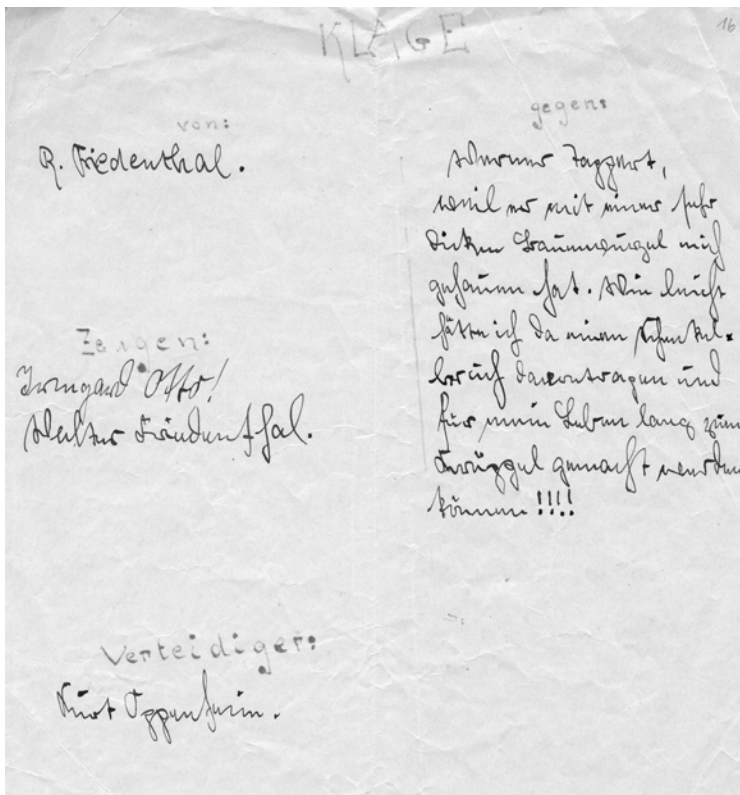 16
KLAGE
von:
R. Friedenthal.
Zeigen:
Irmgard Otto!
Walter Friedenthal.
Verteidiger:
Kurt Oppenheim.
gegen:
Werner Tappert,
weil er mit einer sehr
dicken Baumwurzel mich
gehauen hat. Wie leicht
hätte ich da einen Schenkel-
bruch davontragen und
für mein Leben lang zum
Krüppel gemacht werden
können!!!!